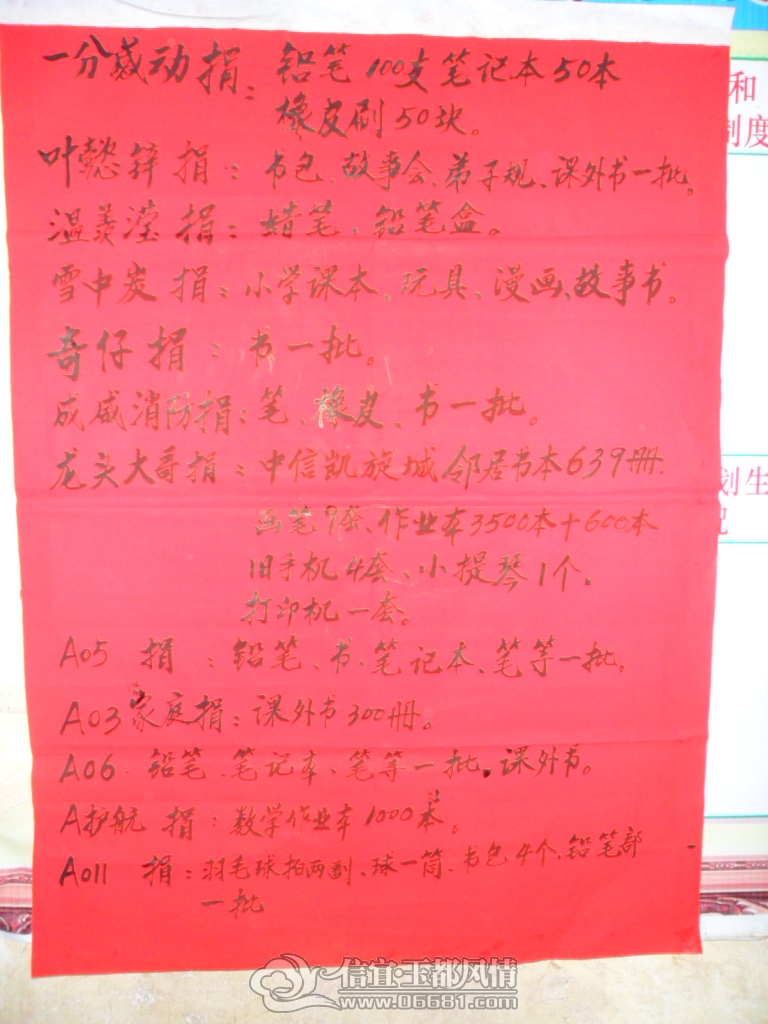 一分感动捐：铅笔100支笔记本50本
橡皮刷50块。
叶懿锌捐：书包、故事会、弟子规、课外书一批。
温羡滢捐：蜡笔、铅笔盒。
雪中炭捐：小学课本、玩具、漫画、故事书。
奇仔捐：书一批。
成威消防捐：笔、橡皮、书一批。
龙头大哥捐：中信凯旋城邻居书本639册.
画笔9套、作业本3500本+600本
旧手机4套、小提琴1个、
打印机一套。
A05 捐：铅笔、书、笔记本、笔等一批.
A03家庭捐：课外书300册。
A06. 铅笔、笔记本、笔等一批.课外书。
A护航 捐：数学作业本1000本。
A011 捐：羽毛球拍两副、球一筒、书包4个、铅笔部
一批
和
制度
划生
信宜·玉都风情
www.06681.com